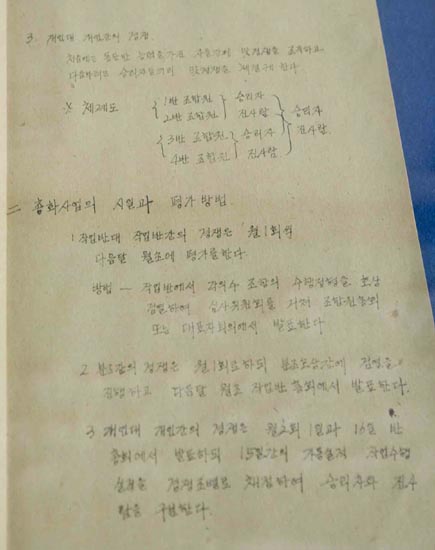 3. 개인대 개인간의 경쟁.
처음에는 동반한 능력을 가진 사람간에 맞경쟁을 조직하고
다음부터는 승리자들끼리 맞경쟁을 체결케 한다
※ 체계도
1반 조합원
2반 조합원
승리자
진사람
3반 조합원
4반 조합원
승리자
진사람
승리자
진사람
二 총화사업의 시일과 평가방법
1 작업반대 작업반간의 경쟁은 월1회씩
다음달 월초에 평가를 한다.
방법 - 작업반에서 각의무 조항의 수행정형을 호상
검열하여 심사위원회를 거쳐 조합원총회
또는 대표자회의에서 발표한다
2 분조간의 경쟁은 월1회로 하되 분조호상간에 검열을
진행하고 다음달 월초 작업반 총회에서 발표한다.
3 개인대 개인간의 경쟁은 월2회 1일과 16일 반
총회에서 발표하되 15일간의 가동실적 작업수행
실적을 경쟁조별로 채점하여 승리자와 진사
람을 구분한다.